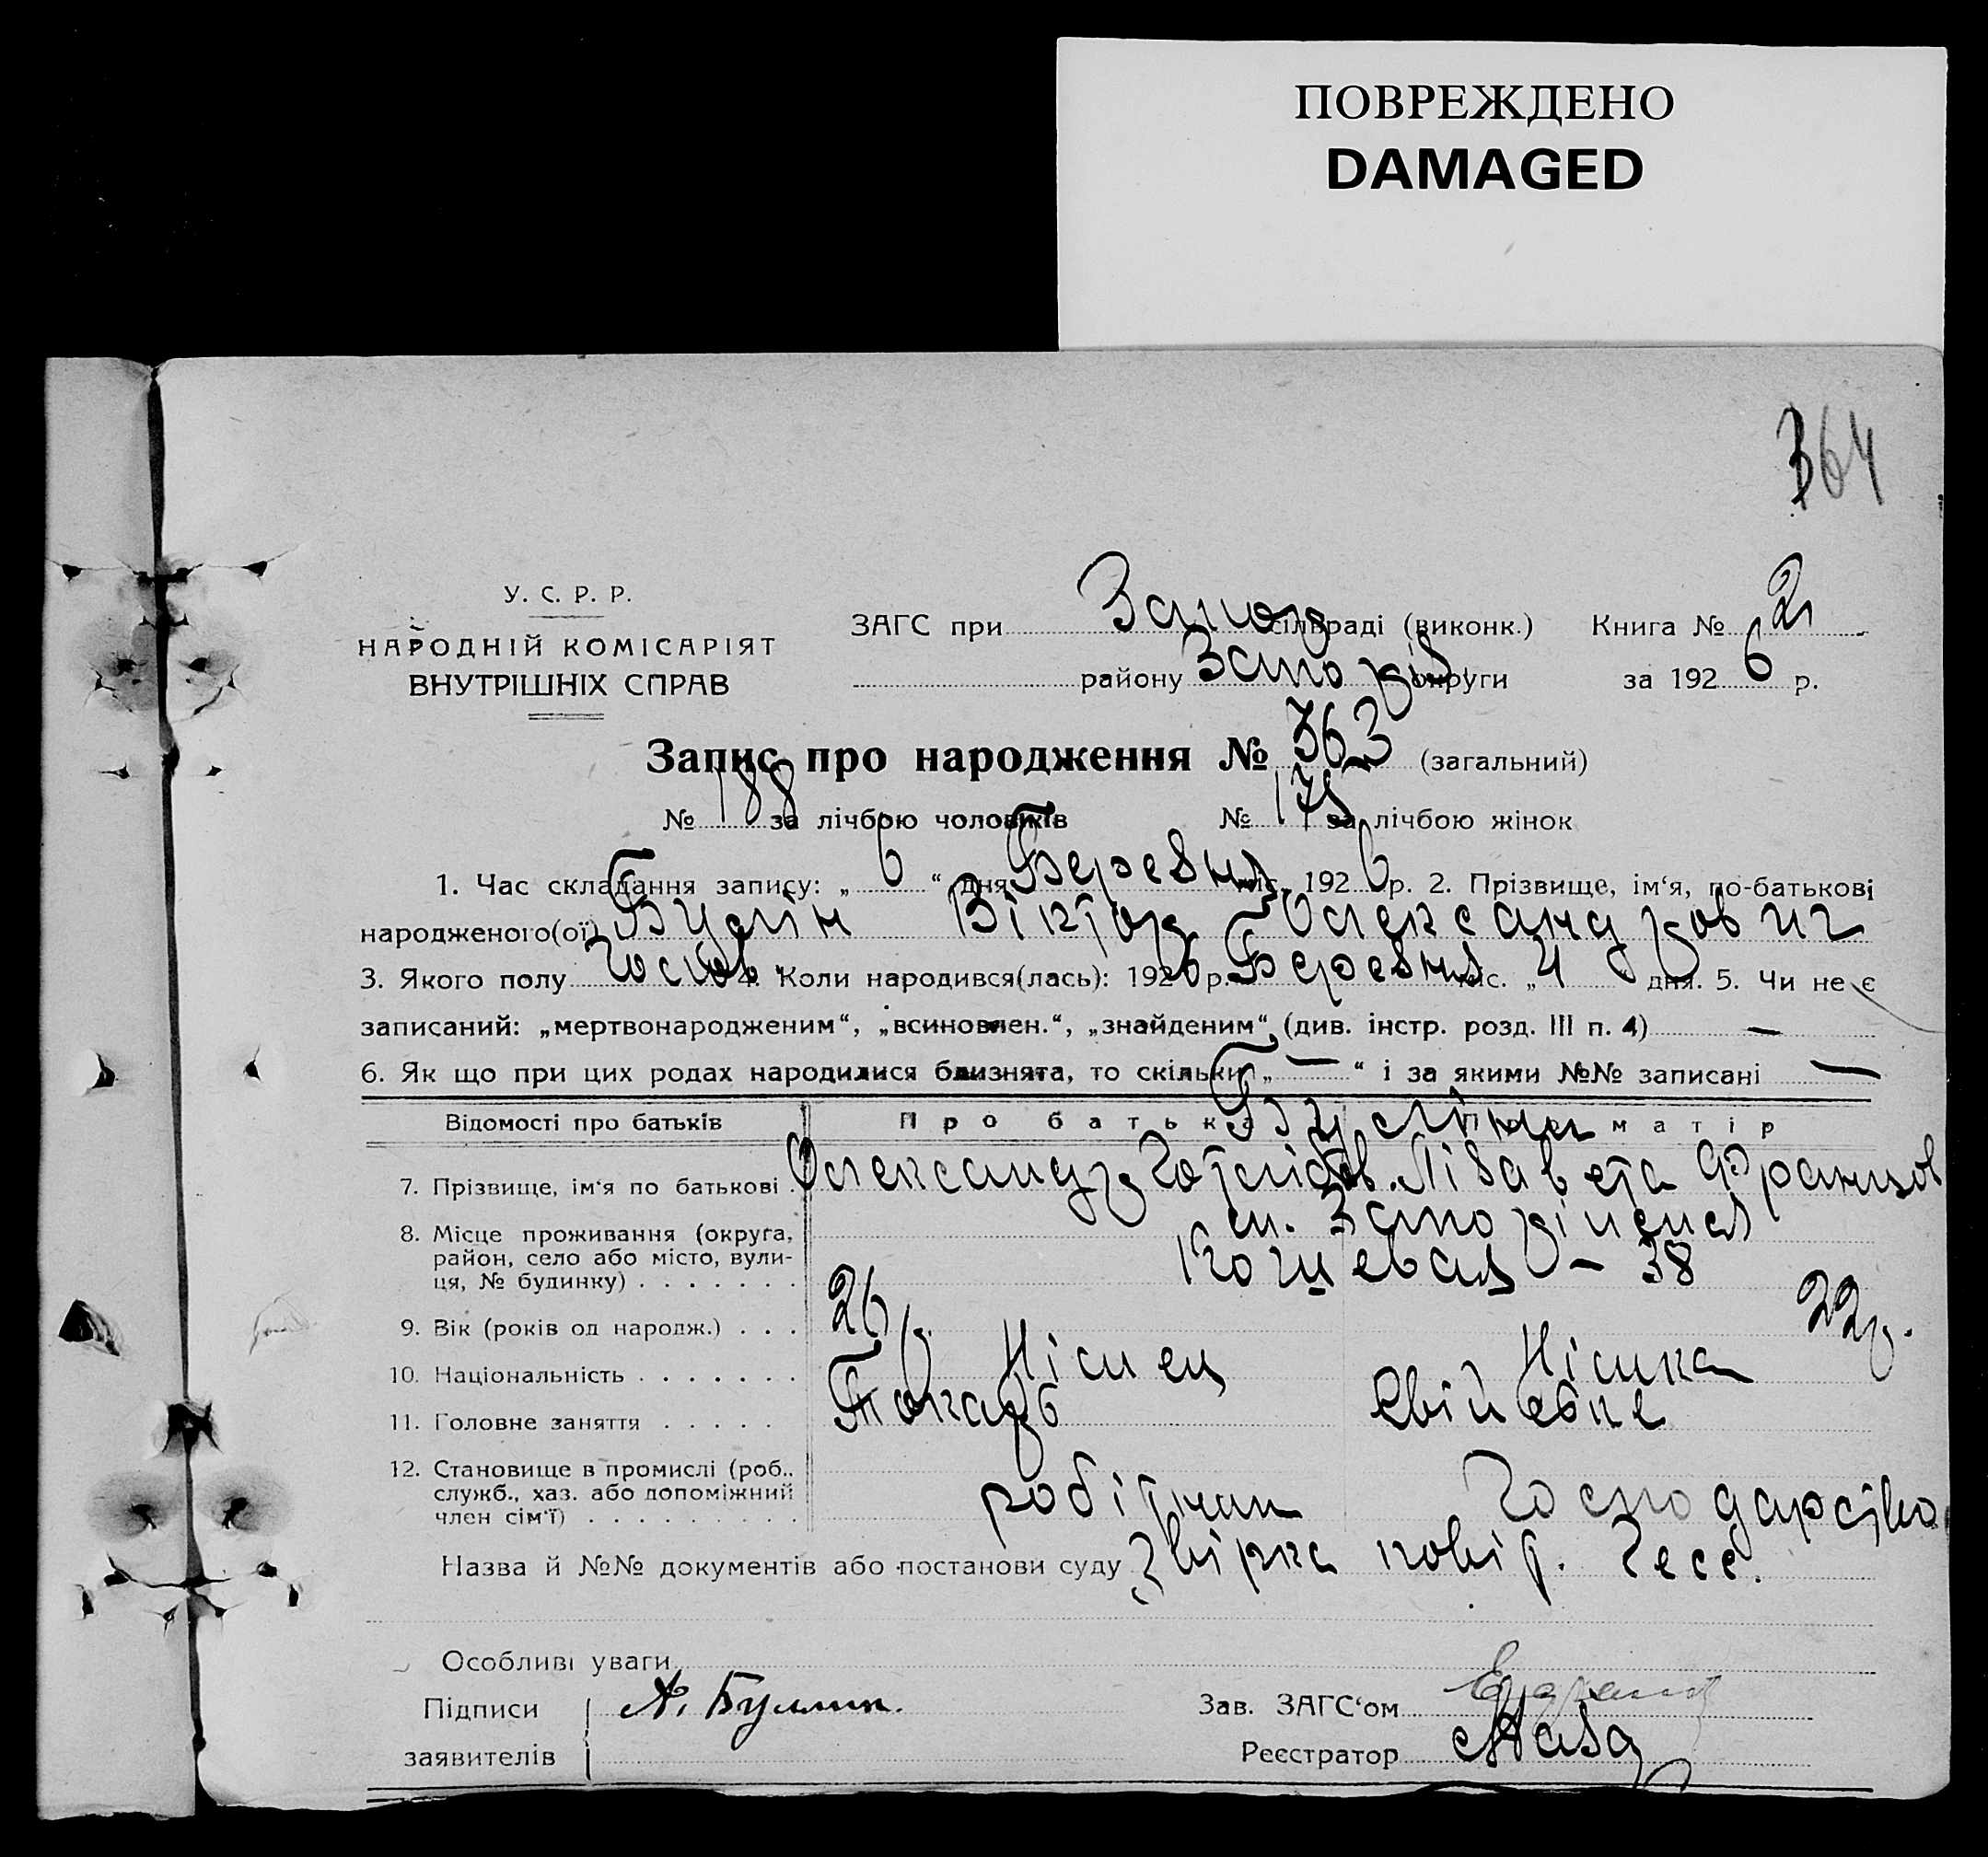 ПОВРЕЖДЕНО
DAMAGED
364
У. С. Р. Р.
НАРОДНІЙ КОМІСАРІЯТ
ВНУТРІШНІХ СПРАВ
ЗАГС при Запор сільраді (виконк.) Книга № 2
району Запоріз округи за 1926 р.
Запис про народження № 363 (загальний)
№ 188 за лічбою чоловіків № 175 за лічбою жінок
1. Час складання запису: „ 6 “ дня Березня міс. 1926 р. 2. Прізвище, ім‘я, по-батькові
народженого(ої) Буллін Віктор Олександрович
3. Якого полу Чолов. 4. Коли народився(лась): 1926 р. Березня міс. „ 4 “ дня. 5. Чи не є
записаний: „мертвонародженим“, „всиновлен.“, „знайденим“ (див. інстр. розд. III п. 4) —
6. Як що при цих родах народилися близнята, то скільки „ — “ і за якими №№ записані —
Відомості про батьків Про батька Про матір
7. Прізвище, ім‘я по батькові . Олександр Готлібов. Лізавета Францов
8. Місце проживання (округа, м. Запоріжжя
район, село або місто, вули-
ця, № будинку) . . . . . . . – 38
9. Вік (років од народж.) . . . 26 р. 22 р.
10. Національність . . . . . . . Німец Німка
11. Головне заняття . . . . . Токарь Свійське
12. Становище в промислі (роб.. робітник Господарство
служб., хаз. або допоміжний
член сім‘ї) . . . . . . . . .
Назва й №№ документів або постанови суду Звірка повід.
Особливі уваги
Підписи А. Буллин. Зав. ЗАГС‘ом
заявителів Реєстратор